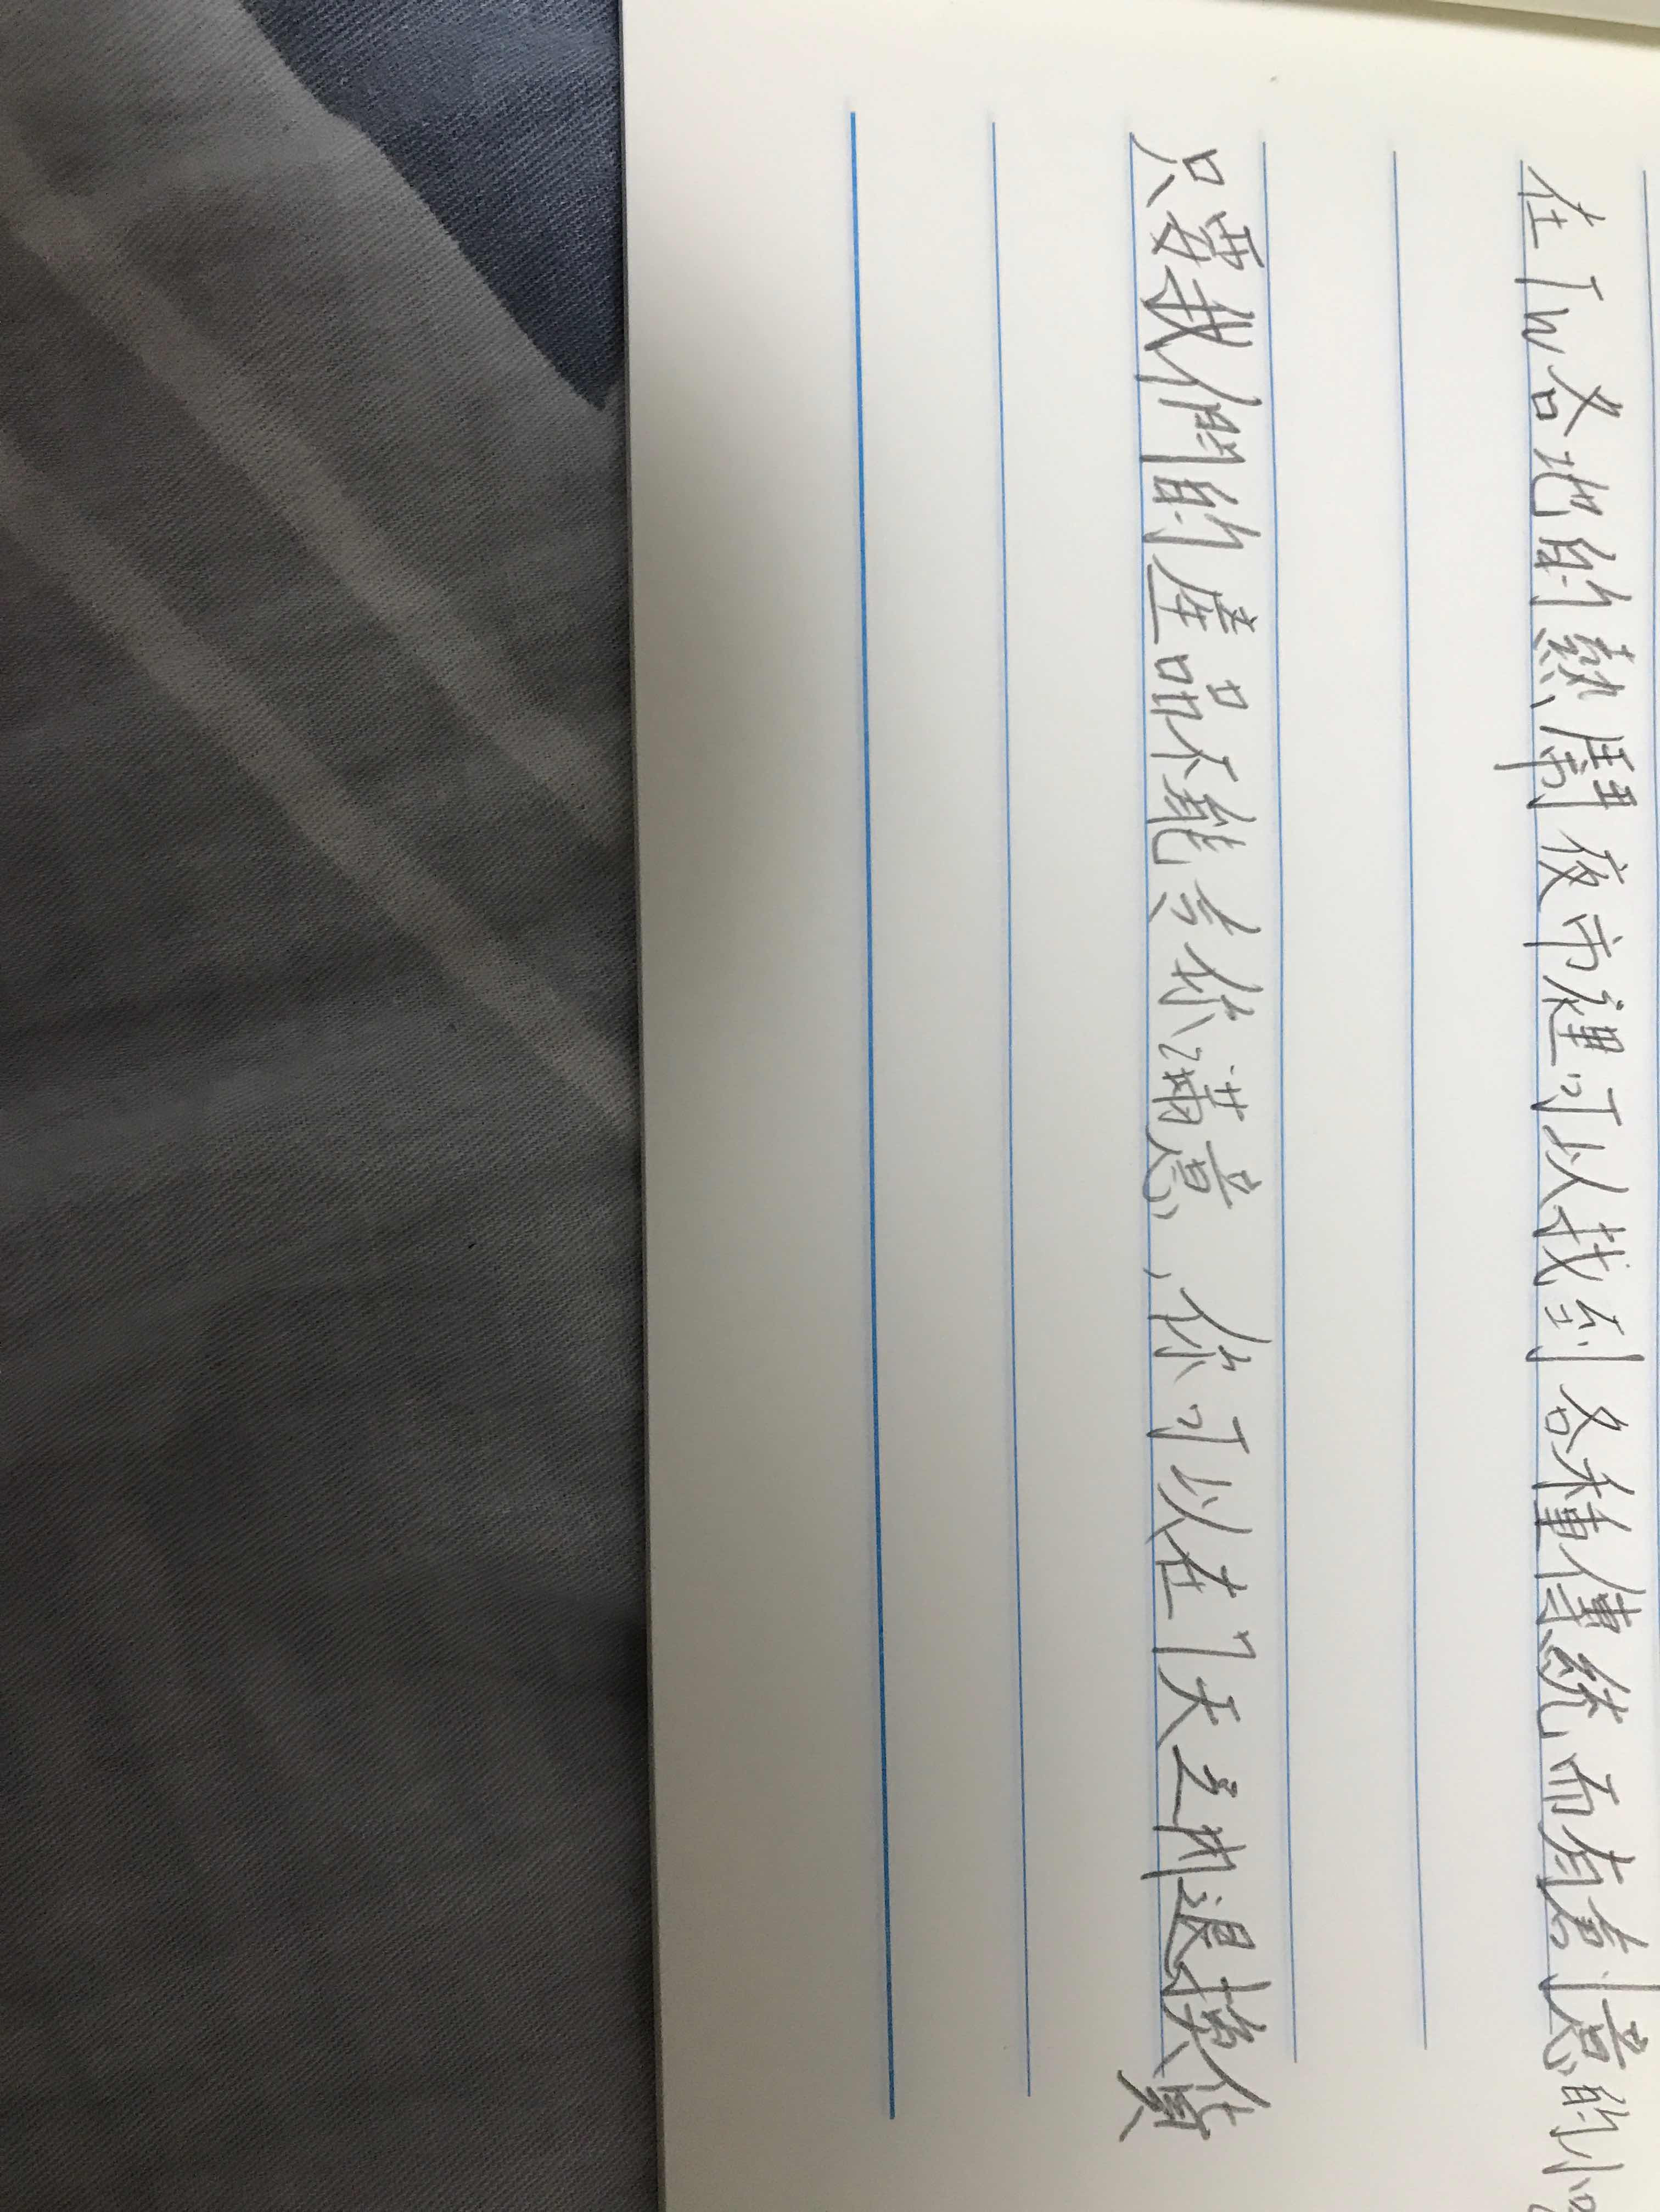 在TW各地的熱鬧夜市裡可以找到各種傳統而有創意的小
只要我們的產品不能你滿意,你可以在7天之內退換貨